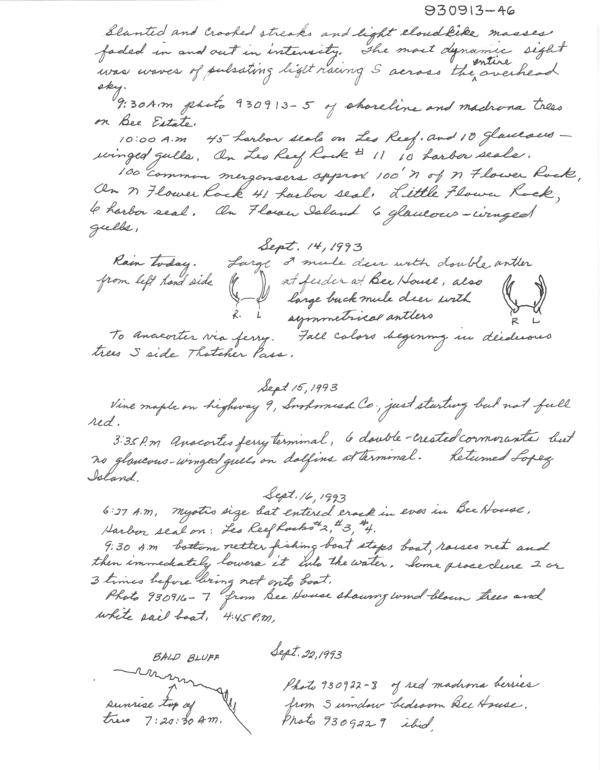 930913-46
Slanted and crooked streaks and light cloudlike masses
faded in and out in intensity. The most dynamic sight
was waves of pulsating light racing S across the entire overhead
sky.
9:30 A.m photo 930913-5 of shoreline and madrona trees
on Bee Estate.
10:00 A.M 45 harbor seals on Leo Reef. and 10 glaucous-
winged gulls. On Leo Reef Rock #11 10 harbor seals.
100 common mergansers approx 100' N of N Flower Rock,
On N Flower Rock 41 harbor seal. Little Flower Rock,
6 harbor seal. On Flower Island 6 glaucous-winged
gulls.
Sept. 14, 1993
Rain today. Large ♂ mule deer with double antler
from left hand side at feeder at Bee House, also
large buck mule deer with
R. L asymmetrical antlers R L
To Anacortes via ferry. Fall colors beginning in deciduous
trees S side Thatcher Pass.
Sept 15, 1993
Vine maple on highway 9, Snohomish Co, just starting but not full
red.
3:35 P.m Anacortes ferry terminal, 6 double-crested cormorants but
no glaucous-winged gulls on dolfins at terminal. Returned Lopez
Island.
Sept. 16, 1993
6:27 A.M. myotis size bat entered crack in eves in Bee House.
Harbor seal on: Leo Reef Rocks #2, #3, #4.
9:30 A.M bottom netter fishing boat stops boat, raises net and
then immediately lowers it into the water. Same procedure 2 or
3 times before bring net onto boat.
Photo 930916-7 from Bee House showing wind blown trees and
white sail boat. 4:45 P.M.
Sept. 22, 1993
BALD BLUFF
Photo 930922-8 of red madrona berries
sunrise top of from S window bedroom Bee House.
trees 7:20:30 AM. Photo 930922 9 ibid.